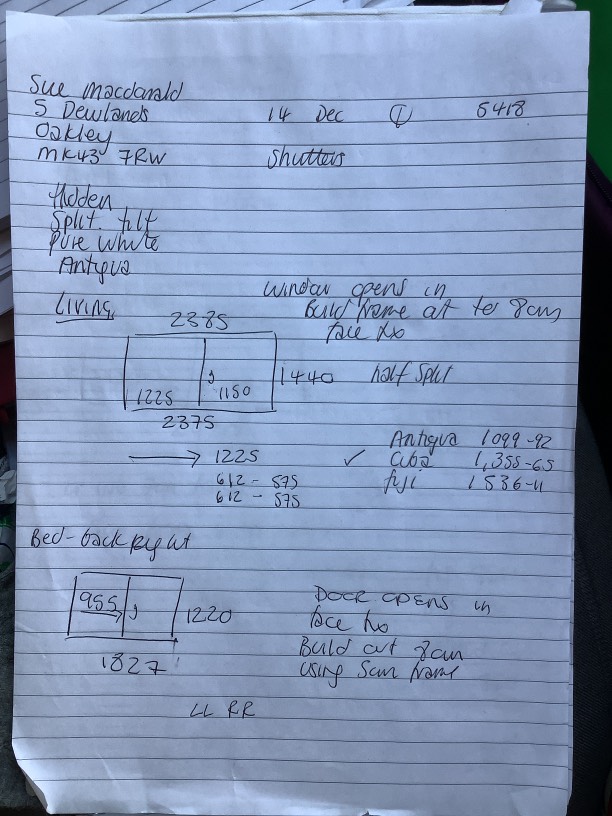 Sue Macdonald
5 Dewlands 14 Dec 5418
Oakley
MK43 7RW Shutters
Hidden
Split tilt
Pure White
Antigua
Living window opens in
2385 Build frame at to 8cm
face fix
1225 1150 1440 half split
2375
Antigua 1099-92
→ 1225 ✓ Cuba 1,355-65
612 - 575 fuji 1536-11
612 - 575
Bed-back right
955 1220 Door opens in
face fix
Build out 8cm
1827 using 5cm frame
LL RR